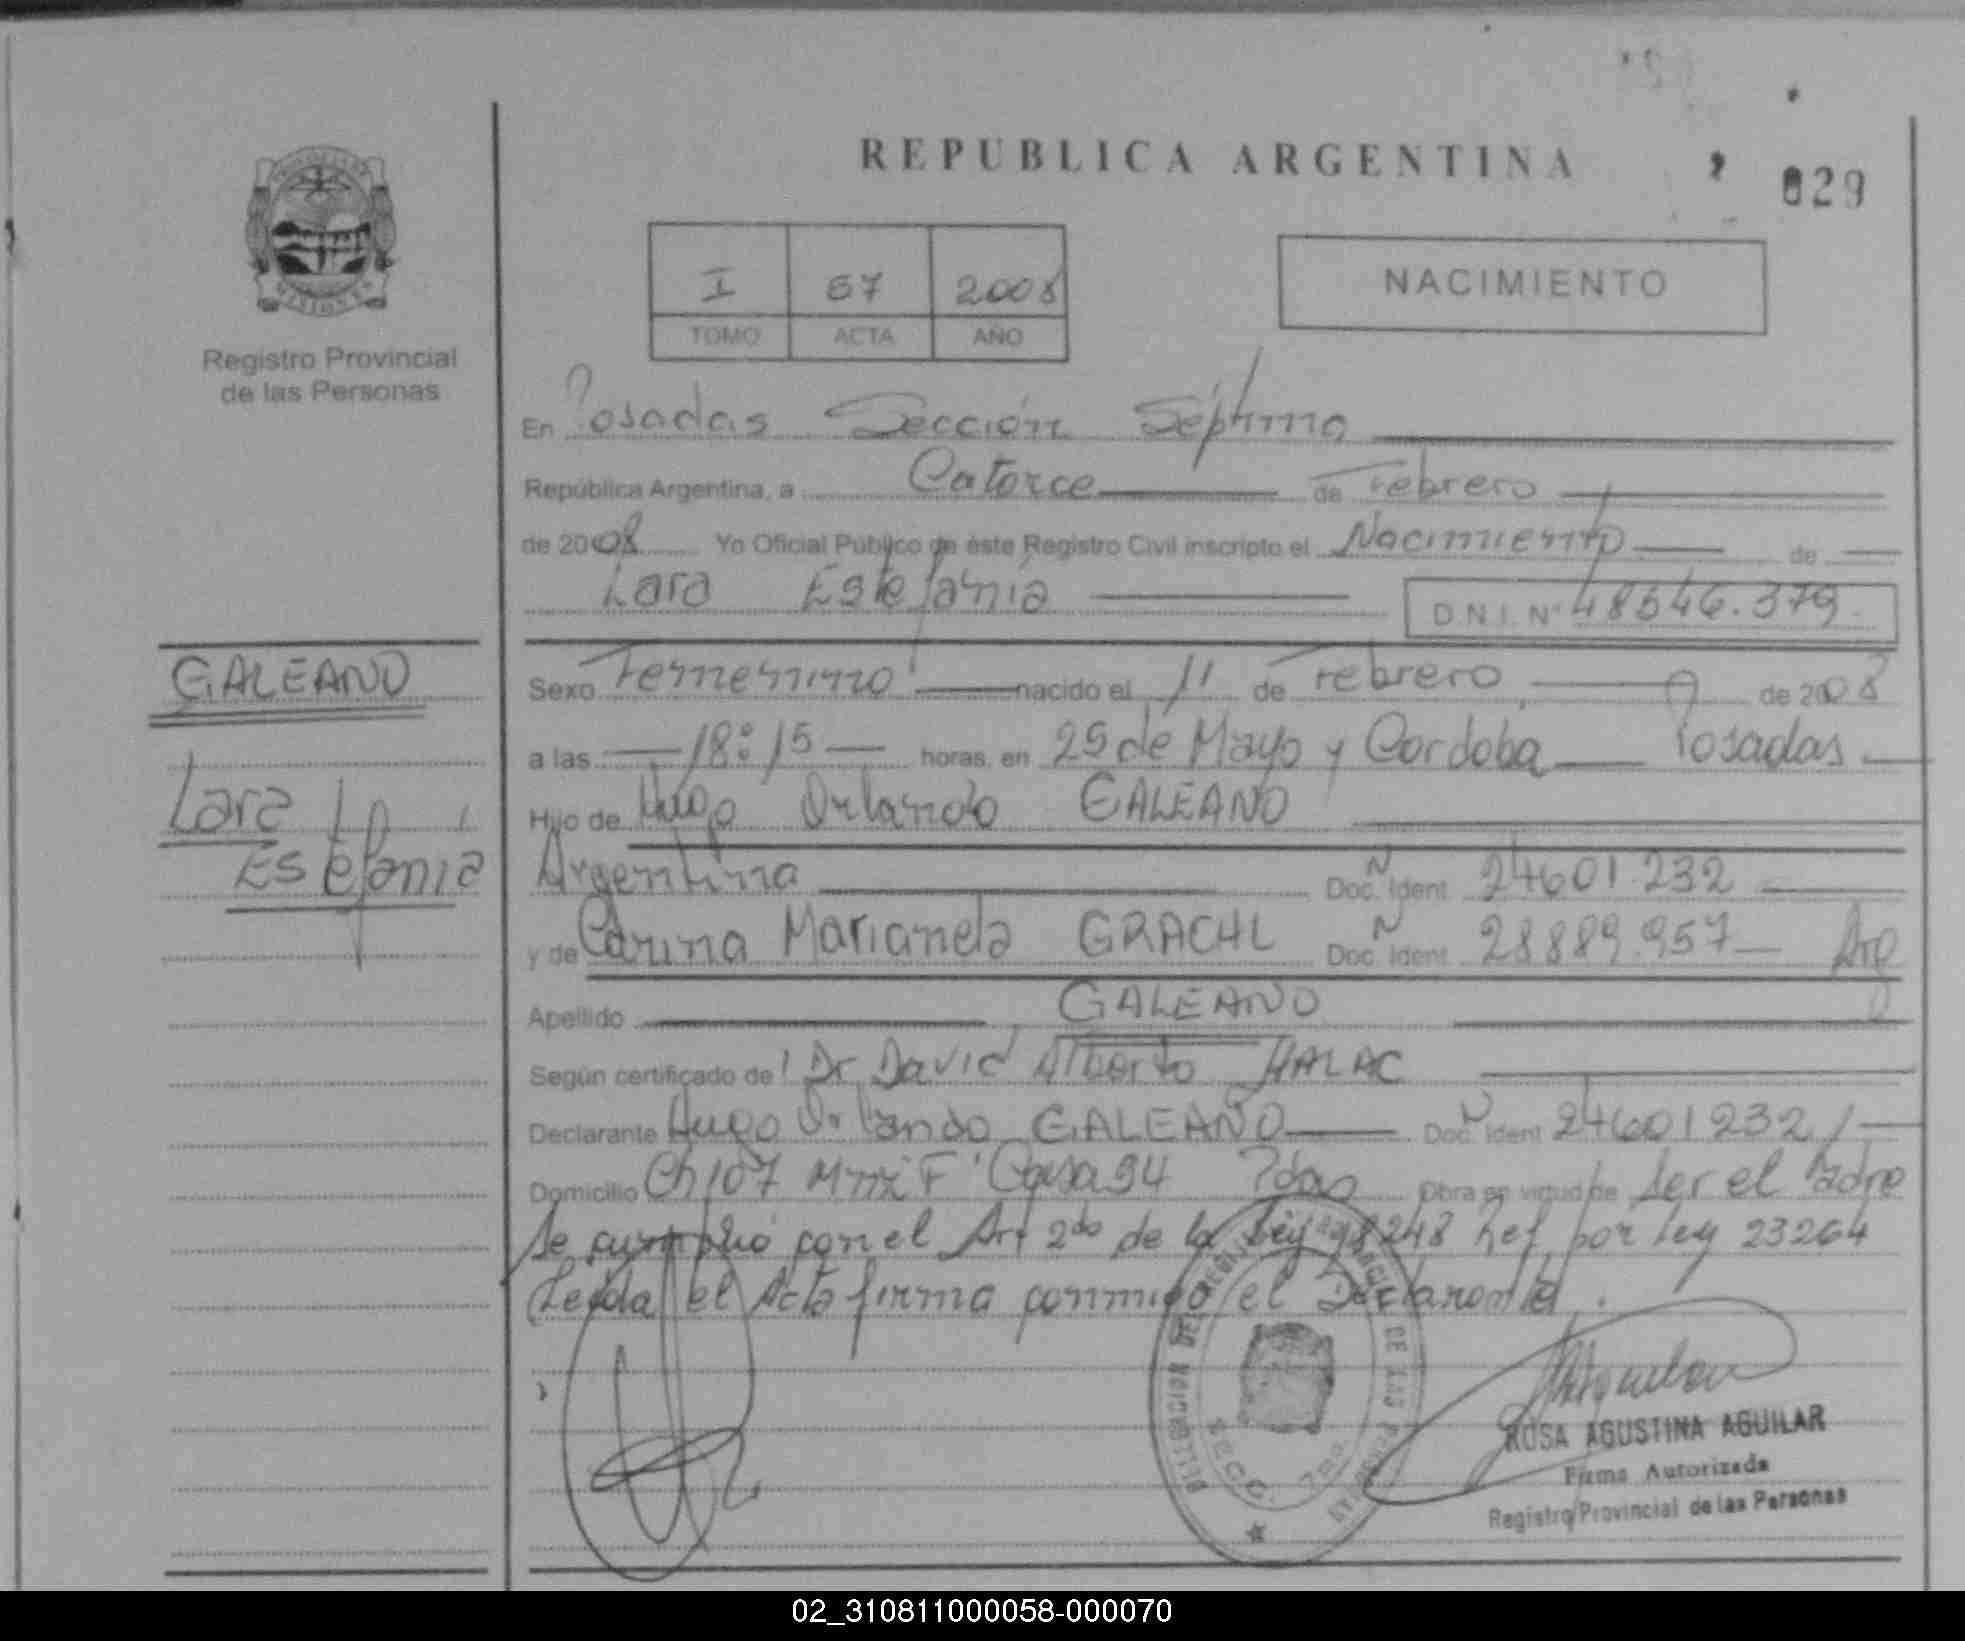 REPUBLICA ARGENTINA
029
I 57 2008
TOMO ACTA AÑO
NACIMIENTO
Registro Provincial
de las Personas
En Posadas Sección Séptima
República Argentina, a Catorce de Febrero
de 2008 Yo Oficial Público de éste Registro Civil inscripto el Nacimiento de
Lara Estefania D.N.I. Nº 48646.379.
GALEANO
Lara
Estefania
Sexo Femenino nacido el 11 de Febrero de 2008
a las 18:15 horas, en 25 de Mayo y Cordoba Posadas
Hijo de Hugo Orlando GALEANO
Argentina Doc. Ident 24601.232
y de Carina Marianela GRACHL Doc. Ident 28889.957 Arg
Apellido GALEANO
Según certificado de Dr David Alberto HALAC
Declarante Hugo Orlando GALEANO Doc. Ident 24601232
Domicilio Ch 107 Mnz F Casa 94 Pdas Obra en virtud de Ser el Padre
Se cumplió con el Art 2do de la Ley 18248 Ref por ley 23264
Leida el Acta firma conmigo el Declarante.
DELEGACION DEL REGISTRO PROVINCIAL DE LAS PERSONAS
SECC. 7ma
ROSA AGUSTINA AGUILAR
Firma Autorizada
Registro Provincial de las Personas
02_310811000058-000070